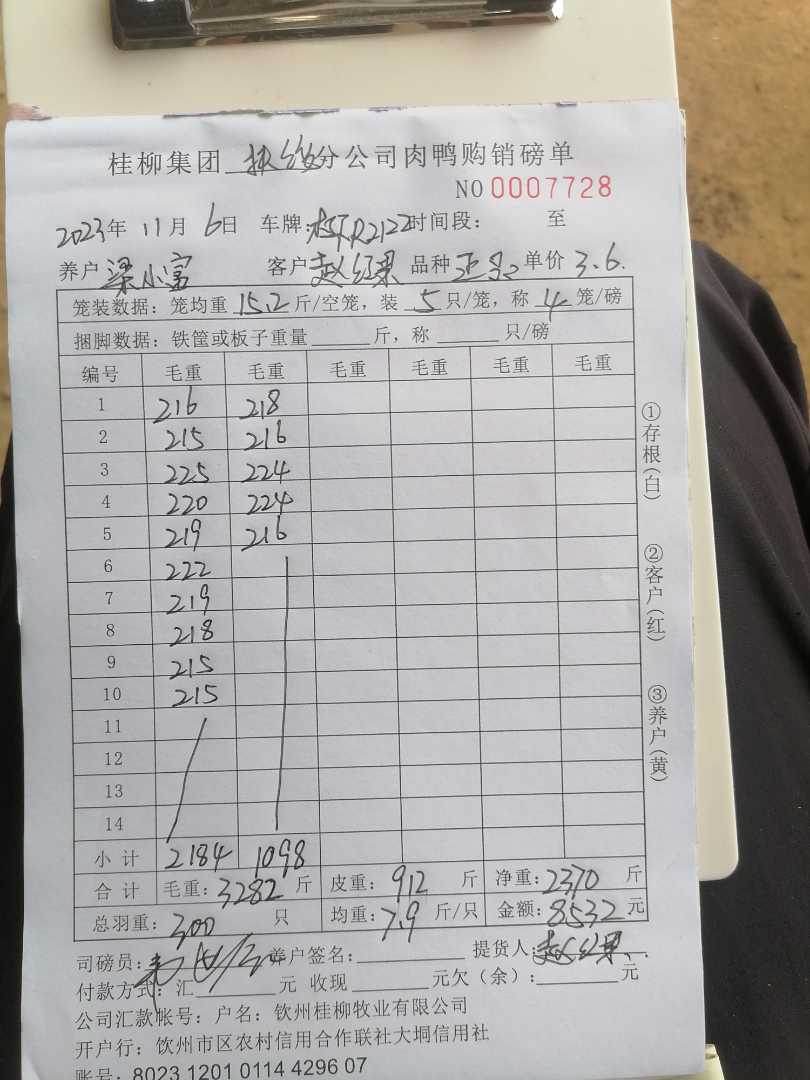 桂柳集团 分公司肉鸭购销磅单
NO 0007728
2023年 11月 6日 车牌: 2122 时间段: 至
养户 梁小富 客户 赵红果 品种 单价 3.6.
笼装数据: 笼均重 15.2 斤/空笼, 装 5 只/笼, 称 4 笼/磅
捆脚数据: 铁筐或板子重量 斤, 称 只/磅
编号 毛重 毛重 毛重 毛重 毛重 毛重
1 216 218
2 215 216
3 225 224
4 220 224
5 219 216
6 222
7 219
8 218
9 215
10 215
11
12
13
14
小计 2184 1098
合计 毛重: 3282 斤 皮重: 912 斤 净重: 2370 斤
总羽重: 300 只 均重: 7.9 斤/只 金额: 8532 元
司磅员: 养户签名: 提货人: 赵红果
付款方式: 汇 元 收现 元欠(余): 元
公司汇款帐号: 户名: 钦州桂柳牧业有限公司
开户行: 钦州市区农村信用合作联社大垌信用社
账号: 8023 1201 0114 4296 07
①存根(白)
②客户(红)
③养户(黄)